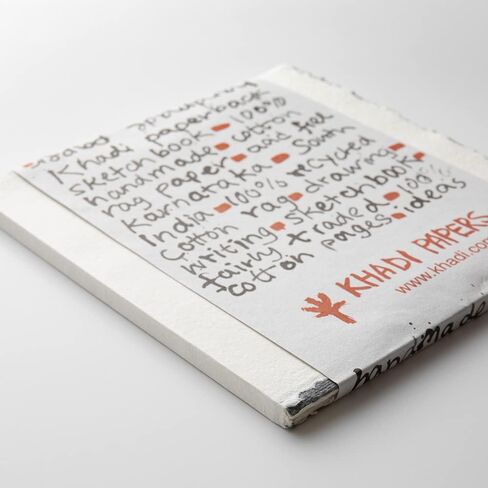 Khadi paperback
sketchbook 100%
handmade cotton
rag paper acid free
Karnataka South
India 100% recycled
cotton rag drawing
writing sketchbook
fairly traded 100%
cotton pages ideas
KHADI PAPERS
www.khadi.com
handmade